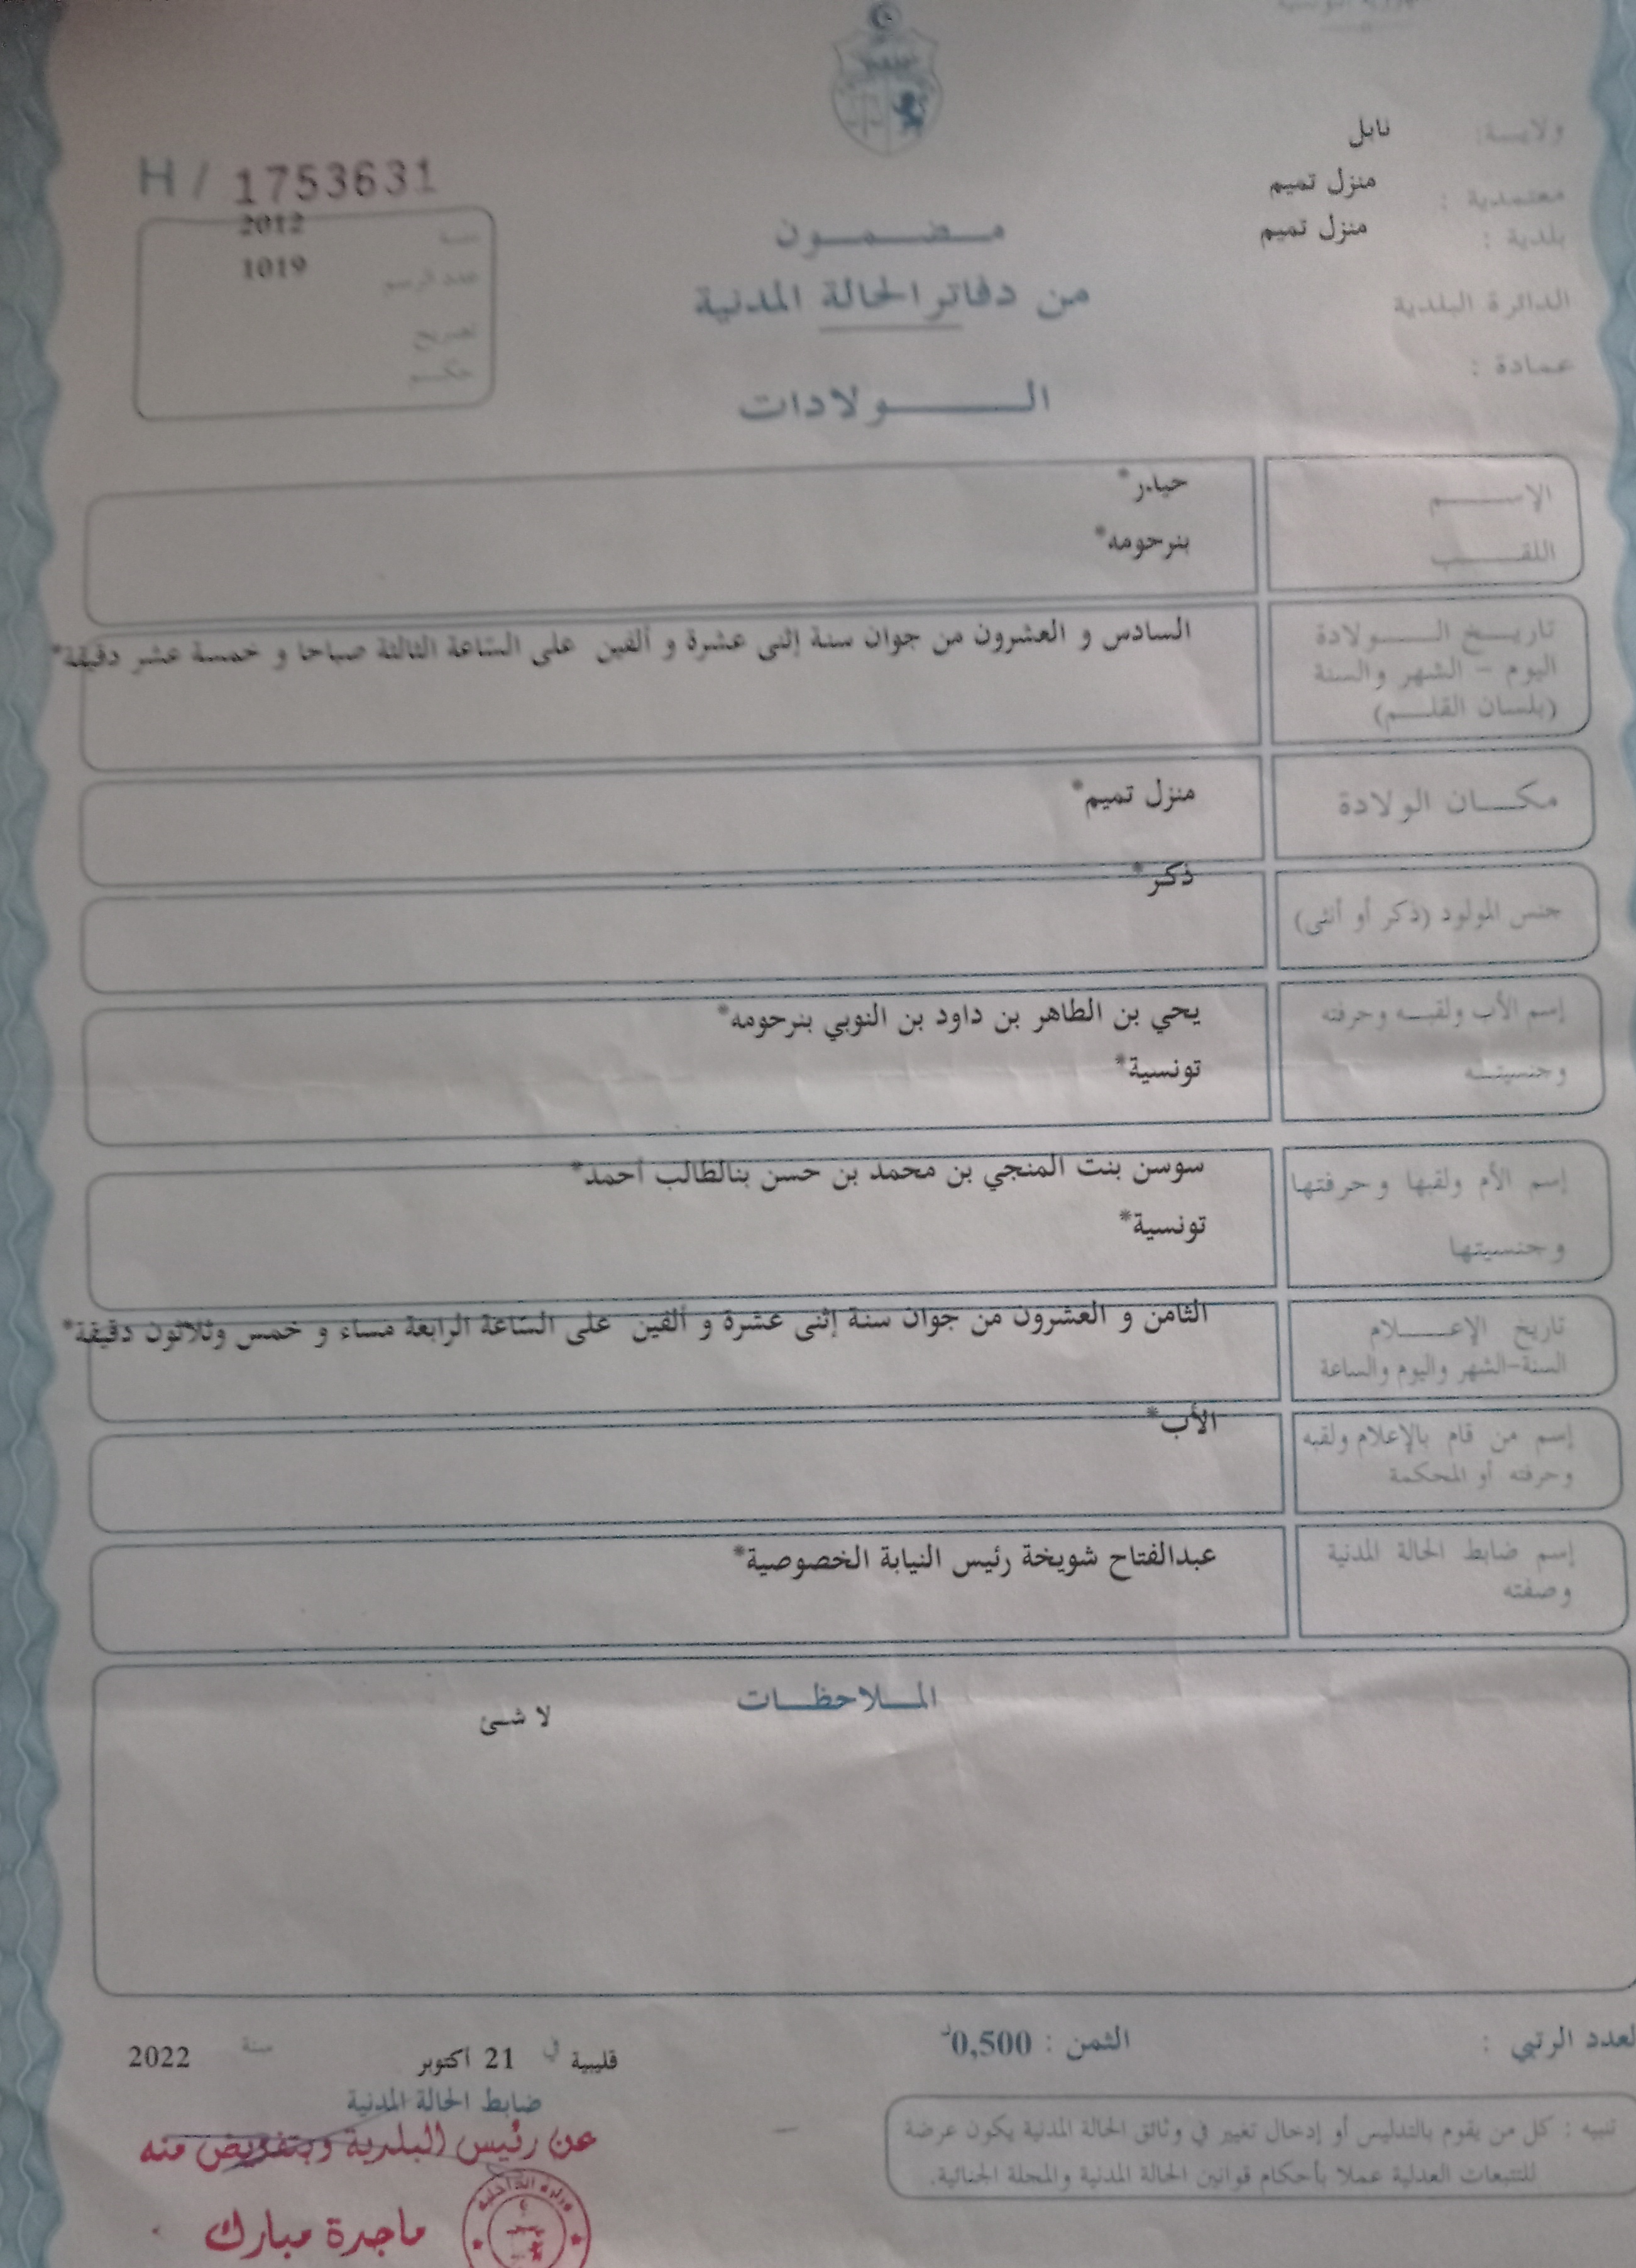 ولايـــة: نابل
معتمدية : منزل تميم
بلدية : منزل تميم
الدائرة البلدية
عمادة :
H / 1753631
سنة 2012
عدد الرسم 1019
تصريح
حكم
مضمون
من دفاتر الحالة المدنية
الولادات
الإسم حيدر*
اللقب بنرحومه*
تاريخ الولادة السادس و العشرون من جوان سنة إثنى عشرة و ألفين على الساعة الثالثة صباحا و خمسة عشر دقيقة*
اليوم - الشهر والسنة
(بلسان القلم)
مكان الولادة منزل تميم*
جنس المولود (ذكر أو أنثى) ذكر*
إسم الأب ولقبه وحرفته يحي بن الطاهر بن داود بن النوبي بنرحومه*
وجنسيته تونسية*
إسم الأم ولقبها وحرفتها سوسن بنت المنجي بن محمد بن حسن بنالطالب أحمد*
وجنسيتها تونسية*
تاريخ الإعلام الثامن و العشرون من جوان سنة إثنى عشرة و ألفين على الساعة الرابعة مساء و خمس وثلاثون دقيقة*
السنة-الشهر واليوم والساعة
إسم من قام بالإعلام ولقبه الأب*
وحرفته أو المحكمة
إسم ضابط الحالة المدنية عبدالفتاح شويخة رئيس النيابة الخصوصية*
وصفته
الملاحظات
لا شئ
لعدد الرتبي :
الثمن : 0,500د
قليبية في 21 أكتوبر سنة 2022
ضابط الحالة المدنية
عن رئيس البلدية وبتفويض منه
ماجدة مبارك
وزارة الداخلية
تنبيه : كل من يقوم بالتدليس أو إدخال تغيير في وثائق الحالة المدنية يكون عرضة
للتتبعات العدلية عملا بأحكام قوانين الحالة المدنية والمجلة الجنائية.